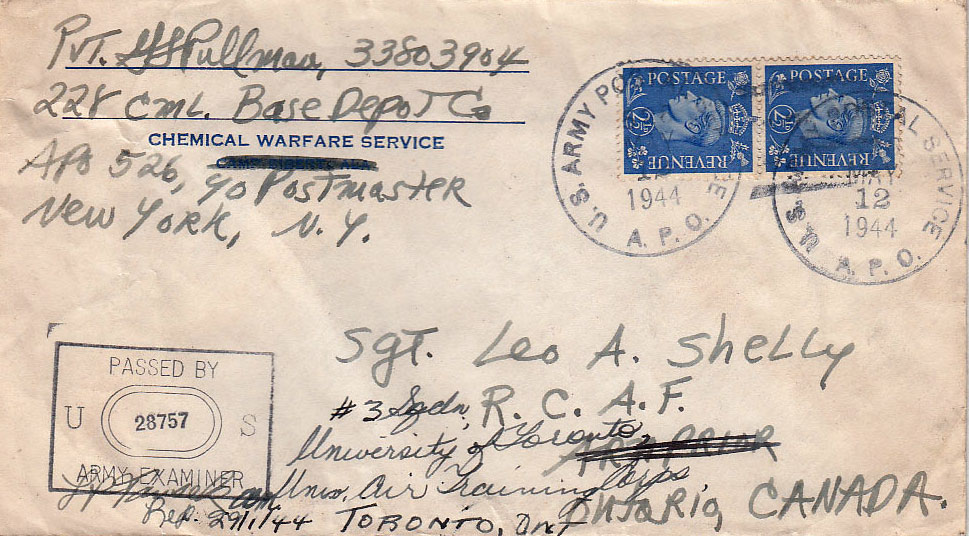 Pvt. Pullman, 33803904
228 Cml. Base Depot Co
CHEMICAL WARFARE SERVICE
APO 526, c/o Postmaster
New York, N.Y.
POSTAGE
REVENUE
2½D
POSTAGE
REVENUE
2½D
U.S. ARMY
1944
A.P.O.
U.S. POSTAL SERVICE
MAY
12
1944
A.P.O.
Sgt. Leo A. Shelly
#3 Sqdn, R.C.A.F.
University of Toronto
ARNPRIOR
Univ. Air Training Corps,
Ontario, CANADA.
TORONTO, Ont
PASSED BY
U 28757 S
ARMY EXAMINER
Rep. 29/1/44